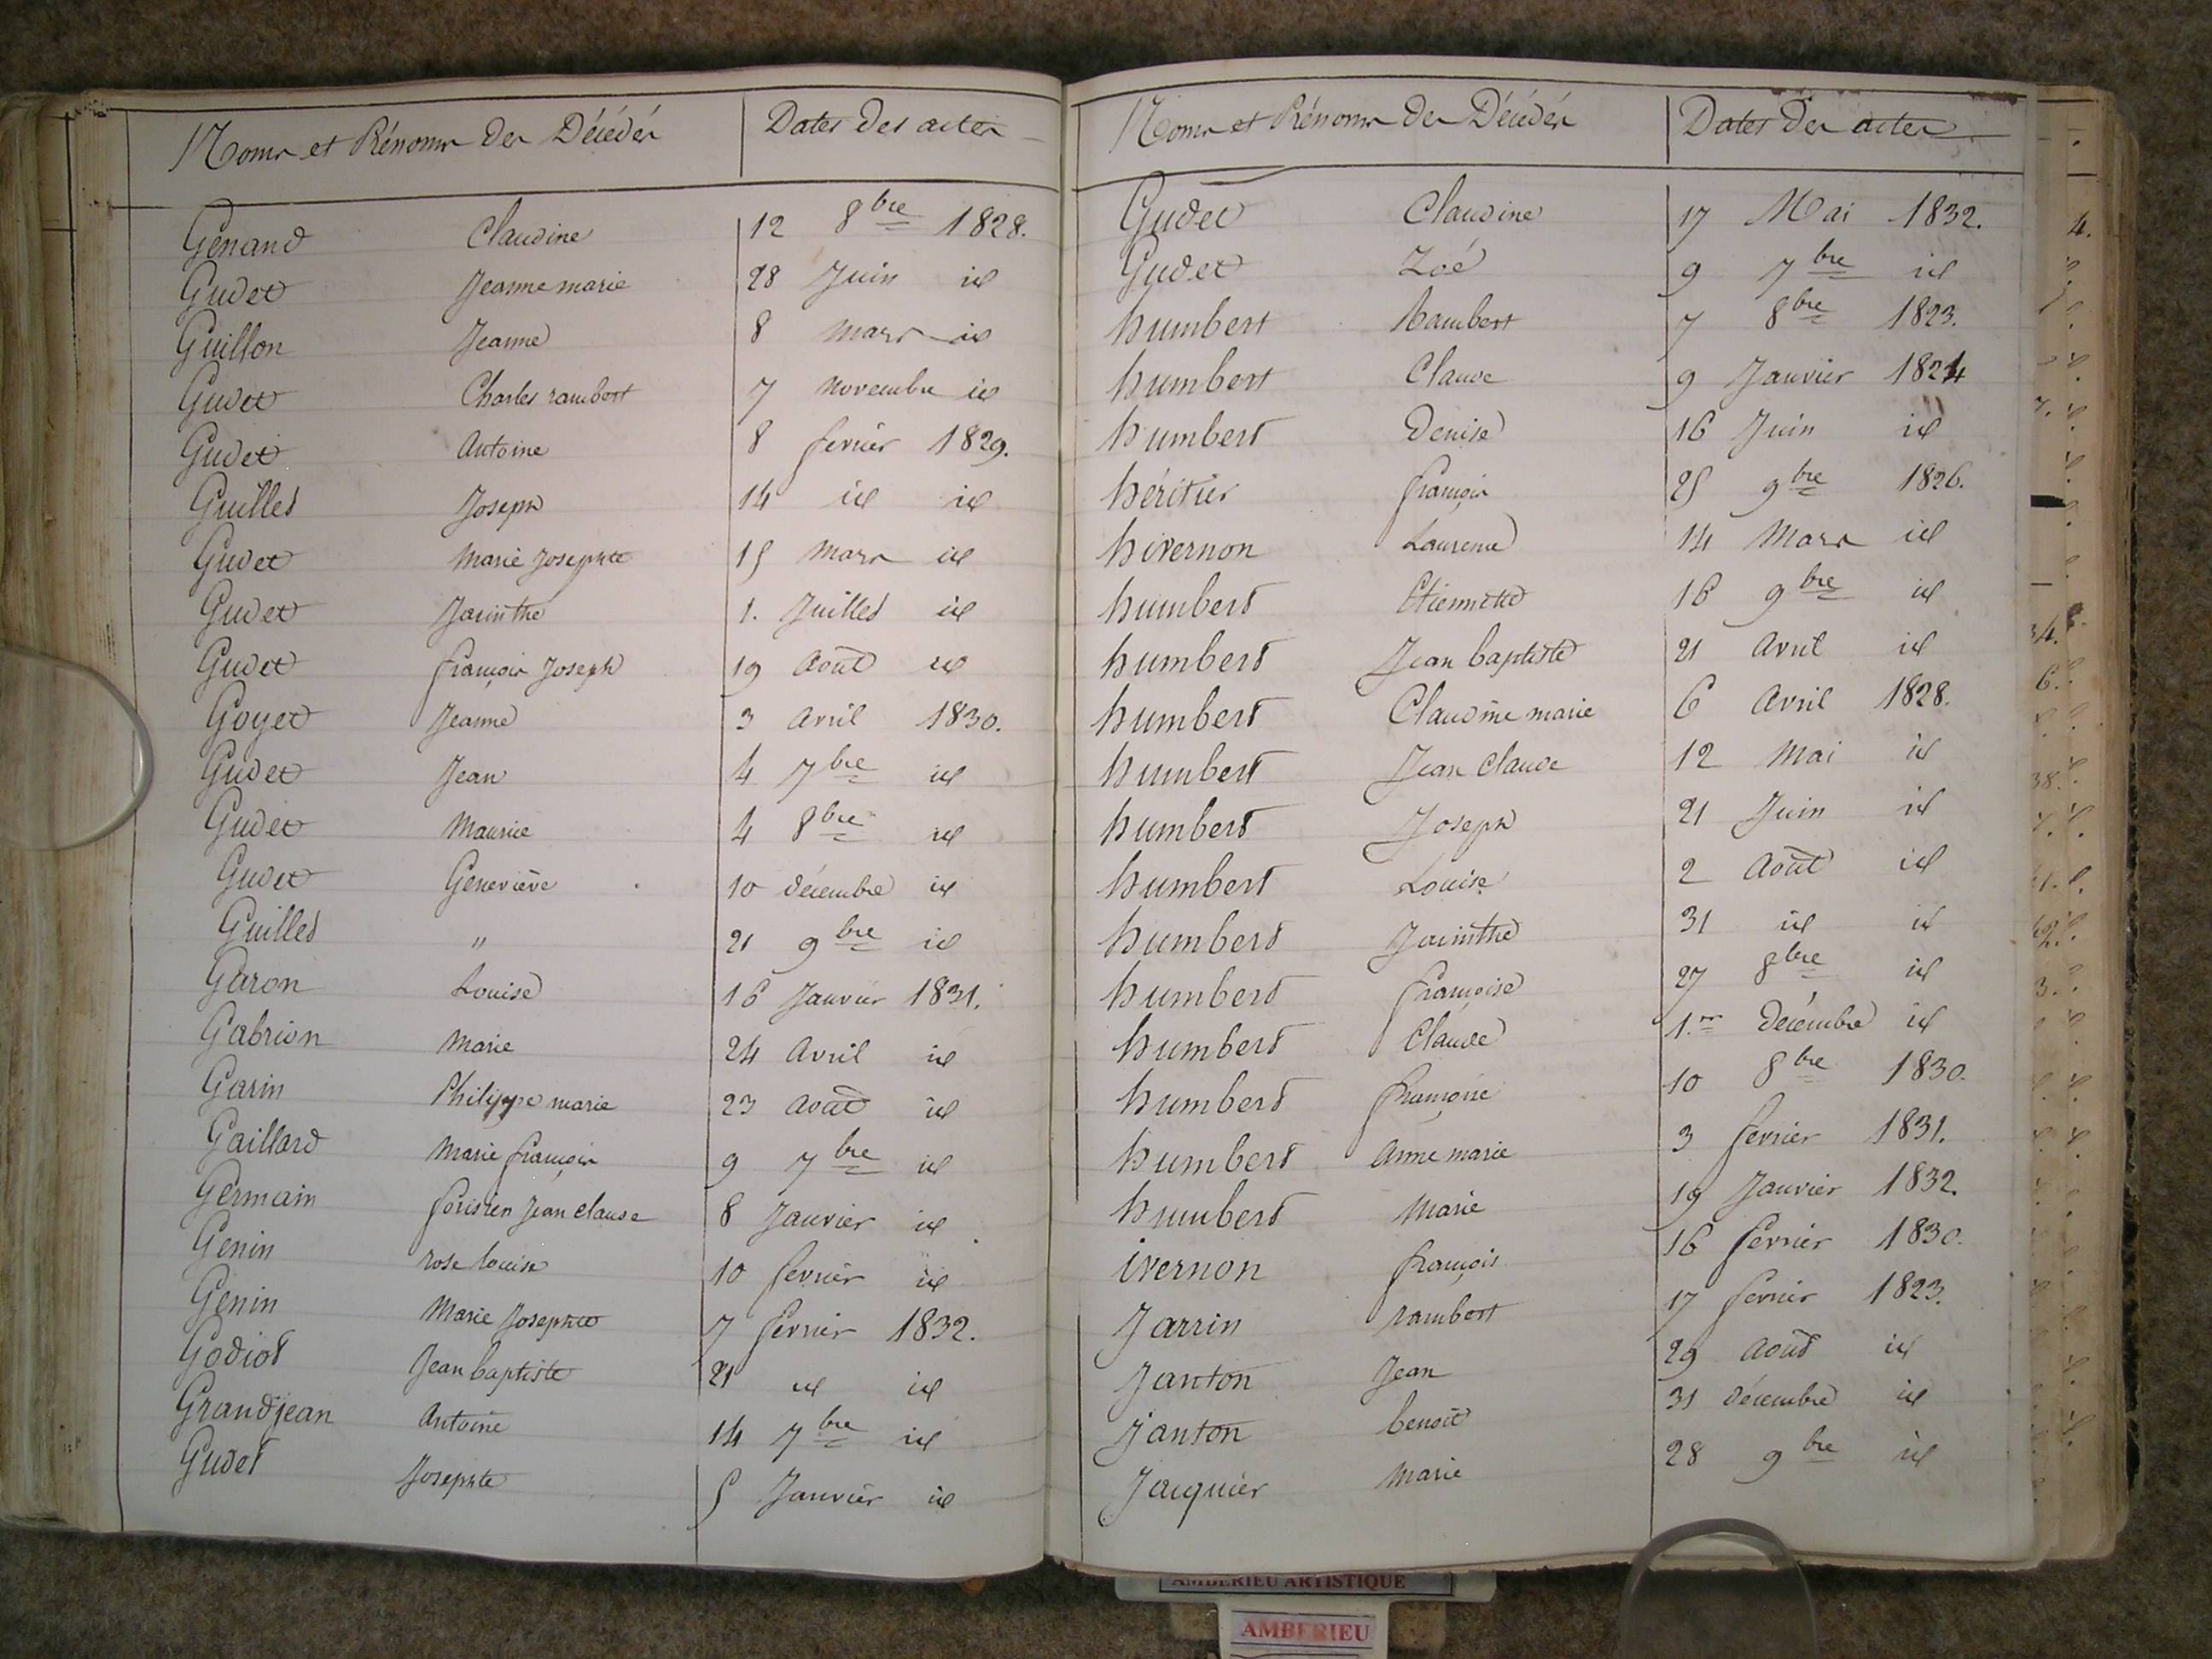 Noms et Prénoms des Décédés Dates des actes
Genand Claudine 12 8bre 1828.
Gudet Jeanne marie 28 Juin id
Guillon Jeanne 8 mars id
Gudet Charles rambert 7 novembre id
Gudet Antoine 8 fevrier 1829.
Guillet Joseph 14 id id
Gudet Marie Josephte 15 mars id
Gudet Jacinthe 1. Juillet id
Gudet françois Joseph 19 Août id
Goyet Jeanne 3 avril 1830.
Gudet Jean 4 7bre id
Gudet Maurice 4 8bre id
Gudet Geneviève 10 décembre id
Guillet " 21 9bre id
Garon Louise 16 Janvier 1831.
Gabrion Marie 24 Avril id
Garin Philippe marie 23 Août id
Gaillard Marie françois 9 7bre id
Germain Jean claude 8 Janvier id
Genin rose louise 10 fevrier id
Genin Marie Josephte 7 fevrier 1832.
Godiot Jean baptiste 21 id id
Grandjean Antoine 14 7bre id
Gudet Josephte 5 Janvier id
Noms et Prénoms des Décédés Dates des actes
Gudet Claudine 17 Mai 1832.
Gudet Zoé 9 7bre id
humbert Rambert 7 8bre 1823.
humbert Claude 9 Janvier 1824
humbert Denise 16 Juin id
héritier françois 25 9bre 1826.
hivernon Laurence 14 Mars id
humbert Etiennette 16 9bre id
humbert Jean baptiste 21 Avril id
humbert Claudine marie 6 Avril 1828.
humbert Jean Claude 12 Mai id
humbert Joseph 21 Juin id
humbert Louise 2 Août id
humbert Jacinthe 31 id id
humbert françoise 27 8bre id
humbert Claude 1.er Décembre id
humbert françoise 10 8bre 1830.
humbert Anne marie 3 fevrier 1831.
humbert Marie 19 Janvier 1832.
ivernon françois 16 fevrier 1830.
Jarrin rambert 17 fevrier 1823.
Janton Jean 29 Août id
Janton benoit 31 décembre id
Jacquier Marie 28 9bre id
AMBERIEU ARTISTIQUE
AMBERIEU